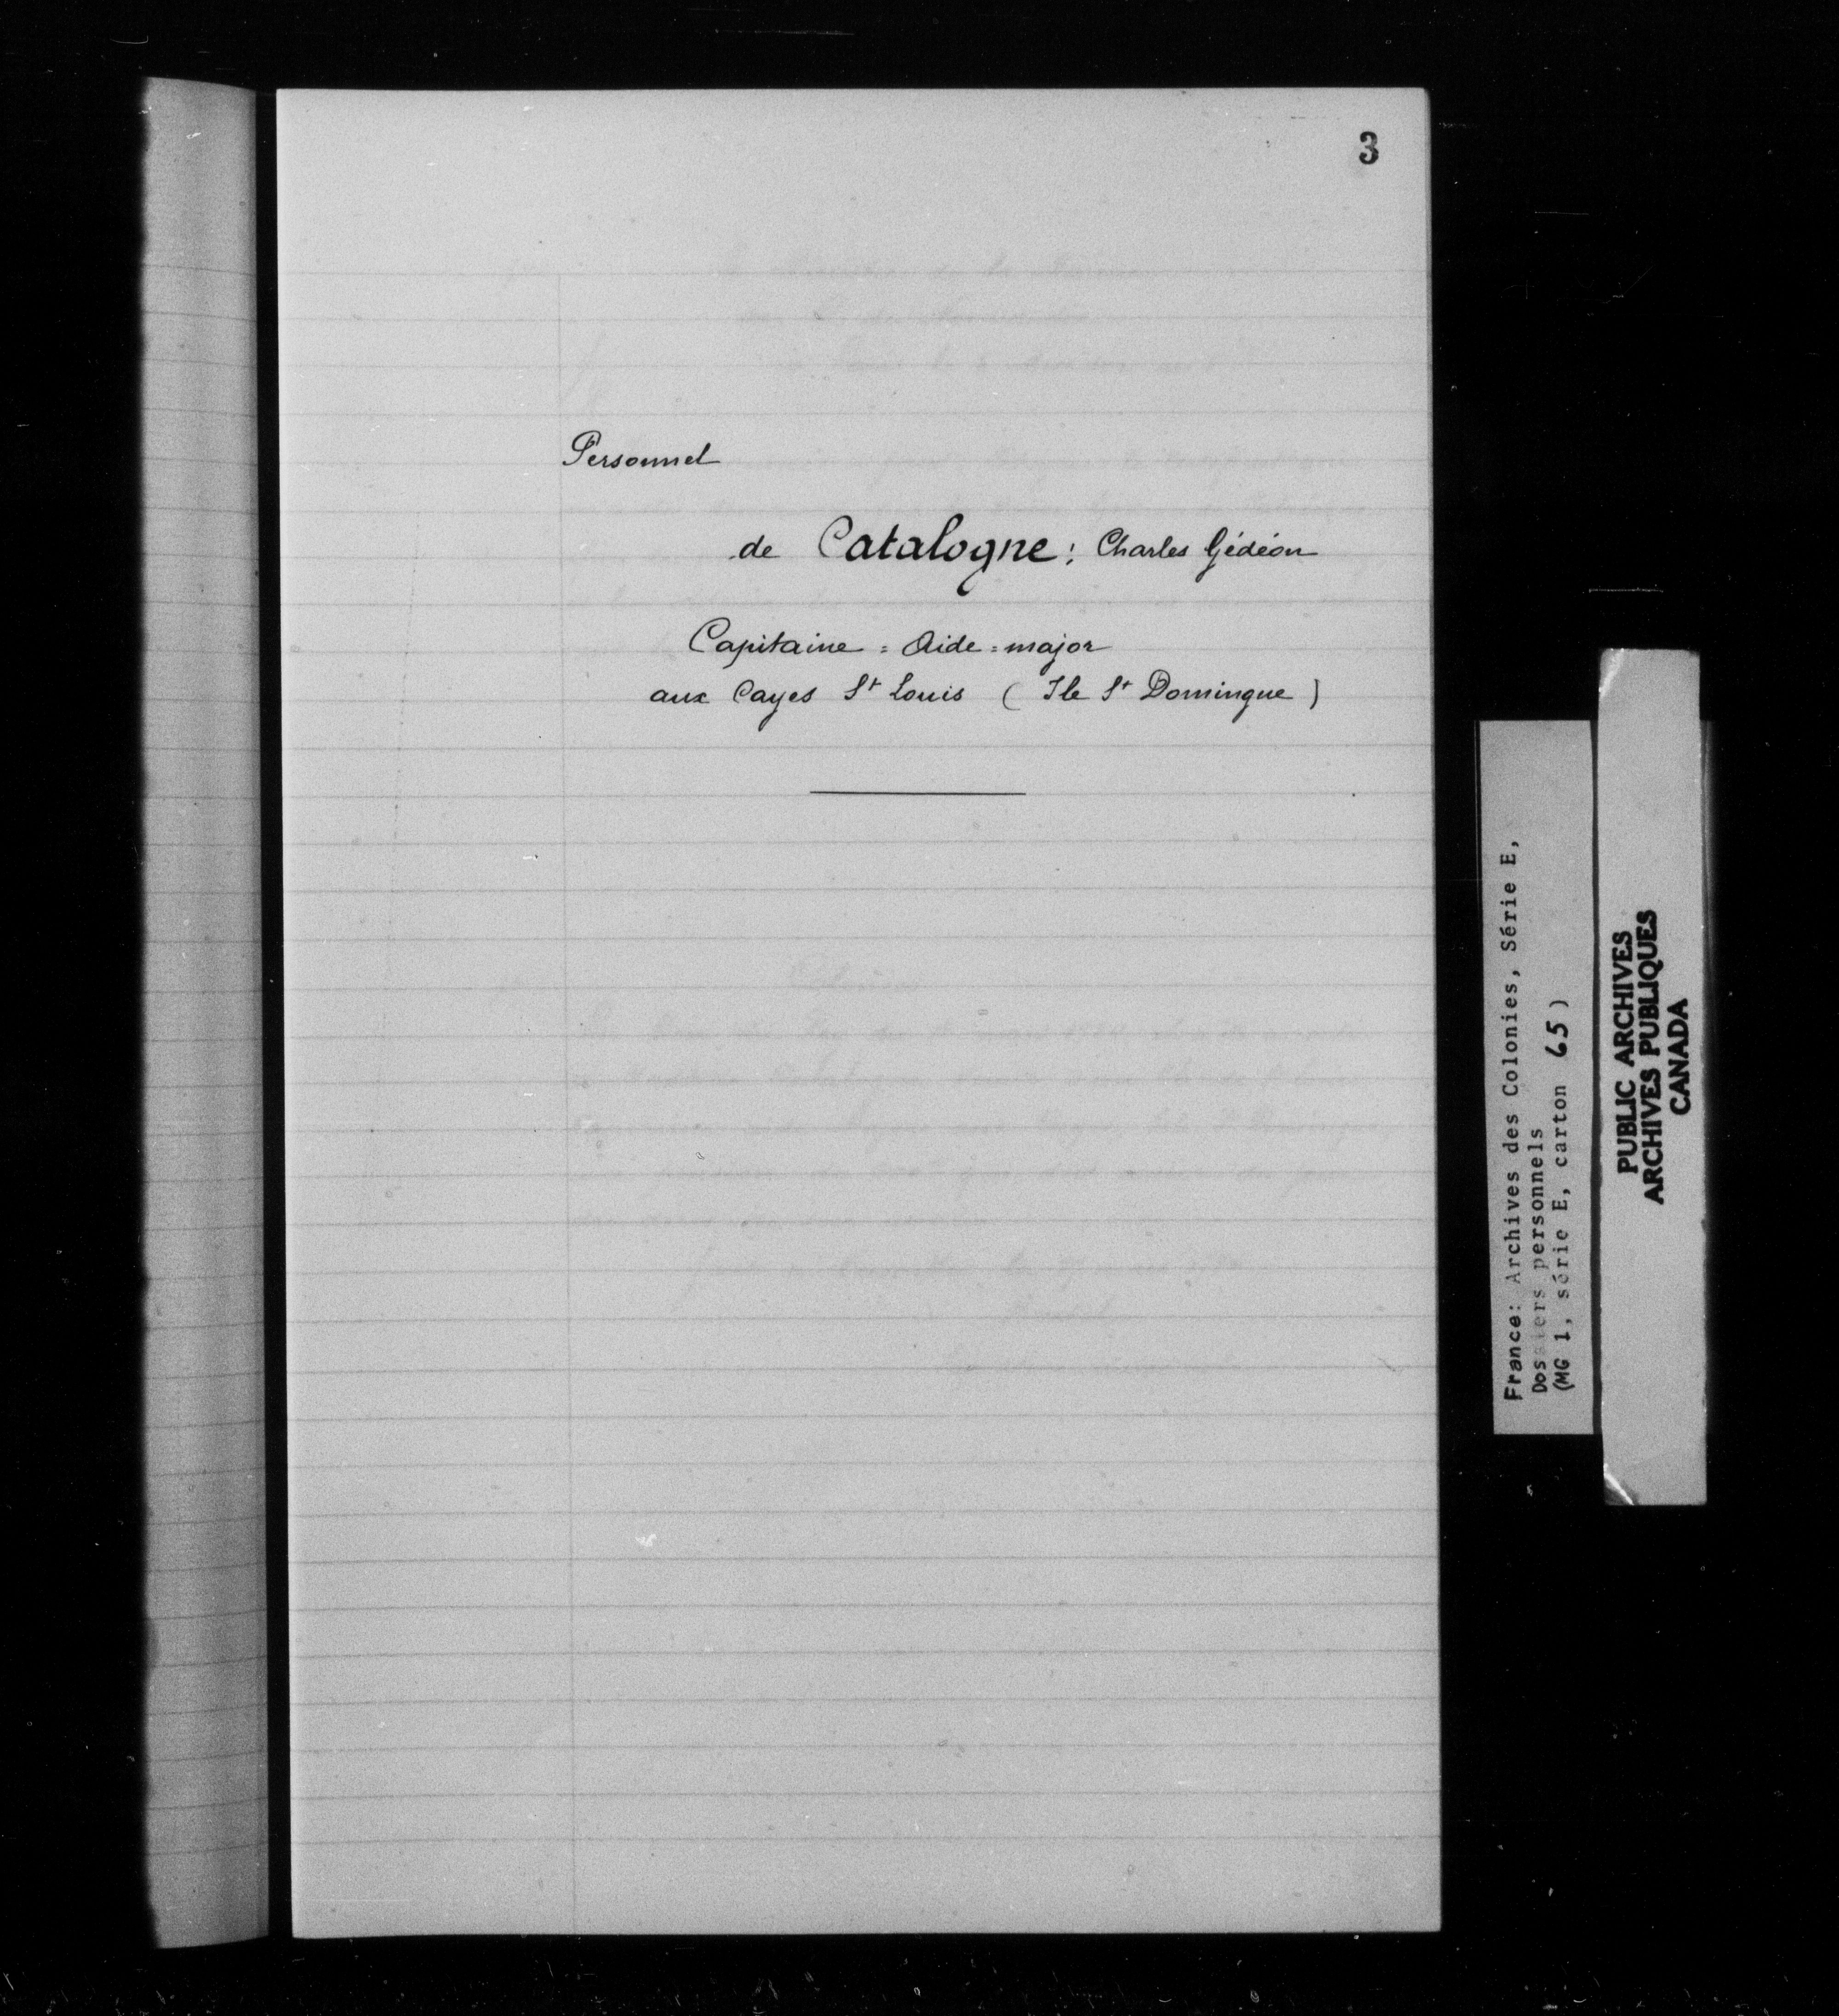 3
Personnel
de Catalogne : Charles Gédéon
Capitaine = Aide = major
aux Cayes St Louis ( Ile St Domingue )
France: Archives des Colonies, Série E,
Dossiers personnels
(MG 1, série E, carton 65)
PUBLIC ARCHIVES
ARCHIVES PUBLIQUES
CANADA